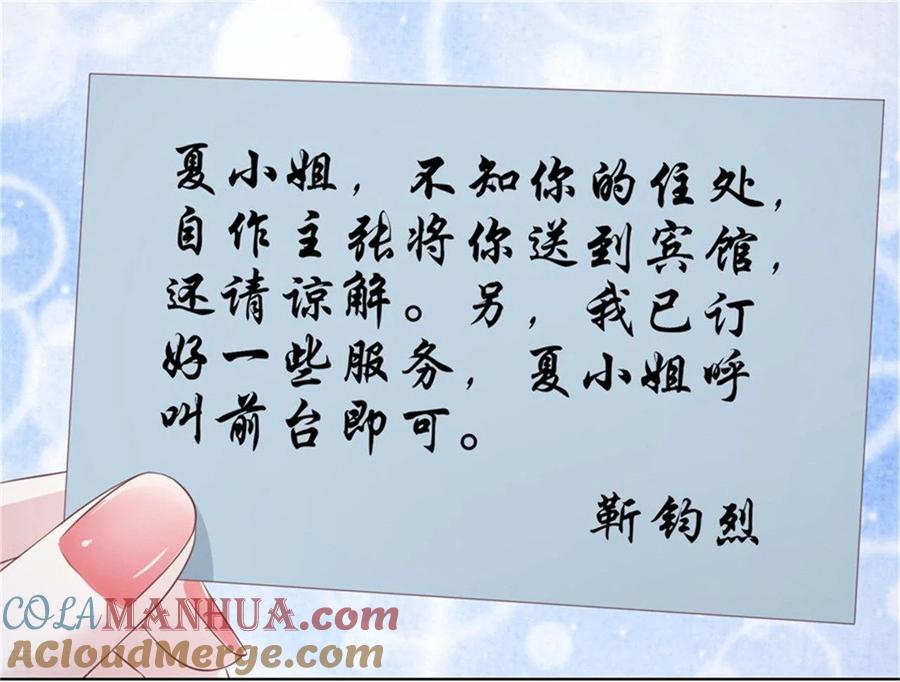 夏小姐，不知你的住处，
自作主张将你送到宾馆，
还请谅解。另，我已订
好一些服务，夏小姐呼
叫前台即可。
靳钧烈
COLAMANHUA.com
ACloudMerge.com